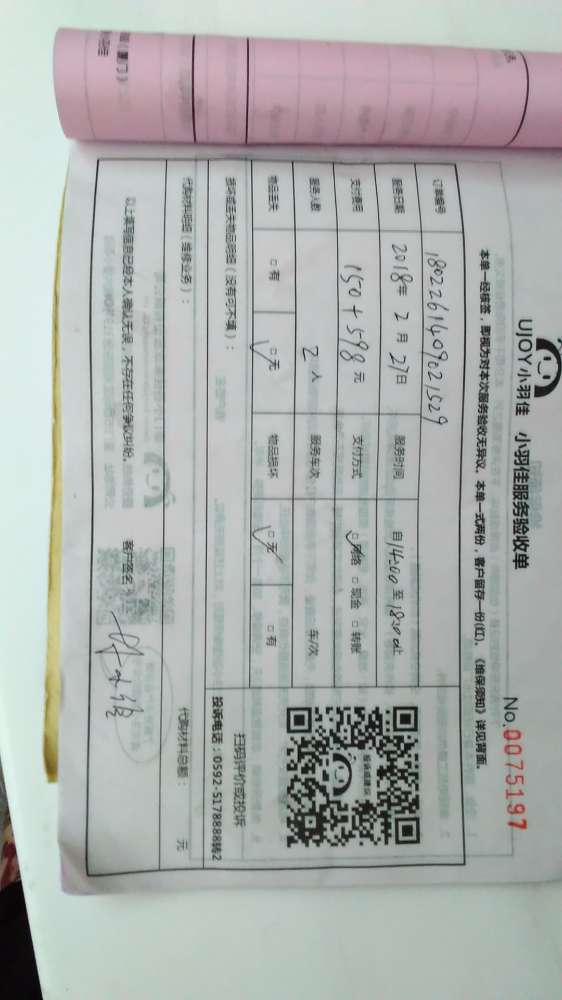 UJOY小羽佳 小羽佳服务验收单
No.0075197
本单一经核签，即视为对本次服务验收无异议。本单一式两份，客户留存一份(红)。《维保须知》详见背面。
订单编号 1802261409021529
服务日期 2018年 2月 27日 服务时间 自14:00至18:00止
支付费用 150+598元 支付方式 ☑网络 □现金 □转账
服务人数 2人 服务车次 车/次
物品丢失 □有 ☑无 物品损坏 ☑无 □有
损坏或丢失物品明细（没有可不填）：
扫码评价或投诉
投诉电话：0592-5178888转2
代购材料明细（维修业务）： 代购材料总额： 元
以上填写信息已经本人确认无误，不存在任何争议纠纷。 客户签名：